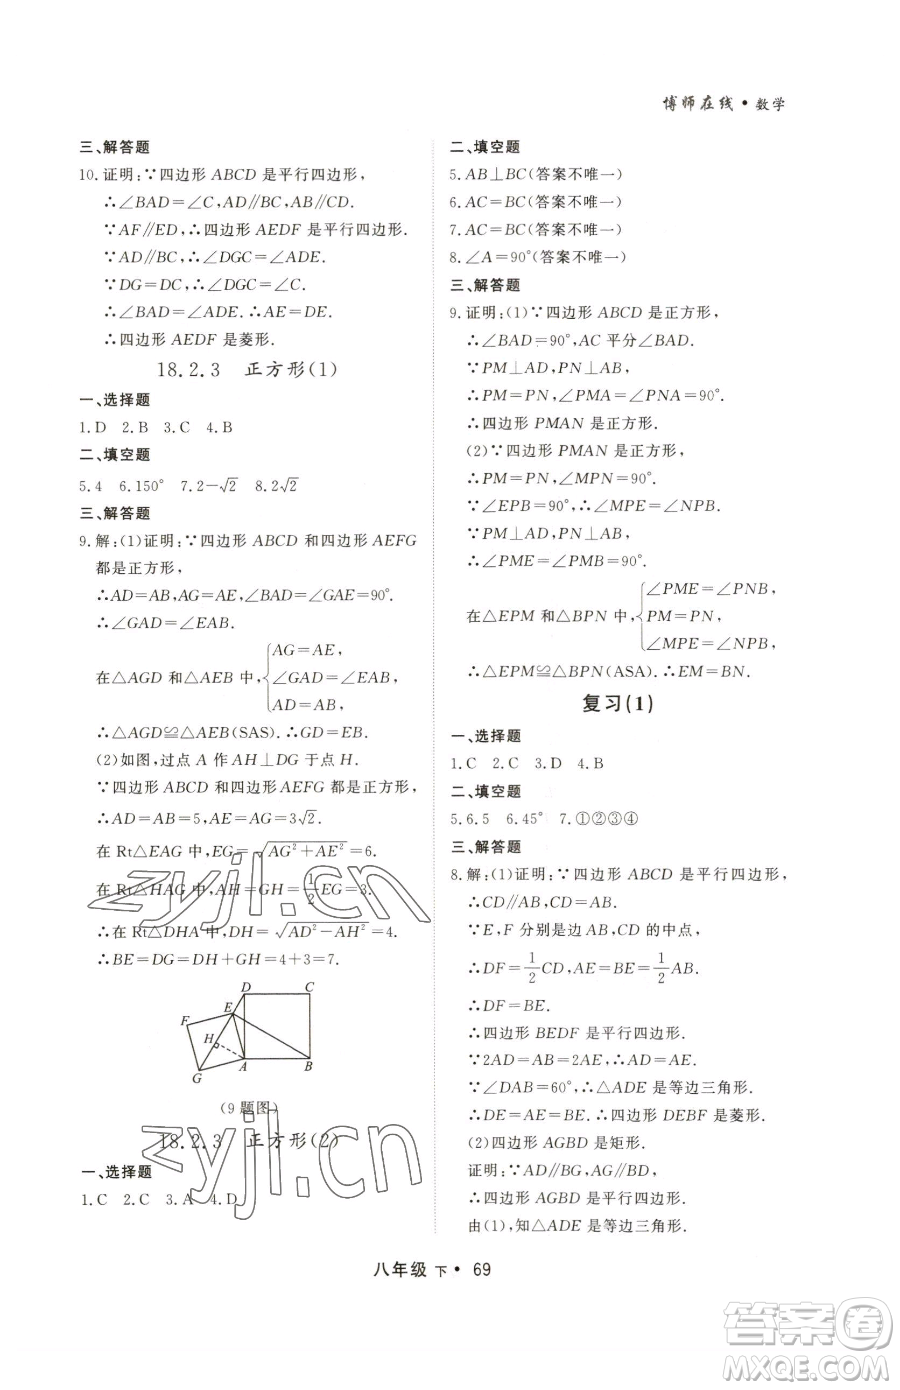 博师在线·数学
三、解答题
10.证明:∵四边形 ABCD 是平行四边形,
∴∠BAD=∠C,AD∥BC,AB∥CD.
∵AF∥ED,∴四边形 AEDF 是平行四边形.
∵AD∥BC,∴∠DGC=∠ADE.
∵DG=DC,∴∠DGC=∠C.
∴∠BAD=∠ADE.∴AE=DE.
∴四边形 AEDF 是菱形.
18.2.3 正方形(1)
一、选择题
1.D 2.B 3.C 4.B
二、填空题
5.4 6.150° 7.2-√2 8.2√2
三、解答题
9.解:(1)证明:∵四边形 ABCD 和四边形 AEFG
都是正方形,
∴AD=AB,AG=AE,∠BAD=∠GAE=90°.
∴∠GAD=∠EAB.
在△AGD 和△AEB 中,{AG=AE,
∠GAD=∠EAB,
AD=AB,
∴△AGD≌△AEB(SAS).∴GD=EB.
(2)如图,过点 A 作 AH⊥DG 于点 H.
∵四边形 ABCD 和四边形 AEFG 都是正方形,
∴AD=AB=5,AE=AG=3√2.
在 Rt△EAG 中,EG=√(AG²+AE²)=6.
在 Rt△HAG 中,AH=GH=1/2EG=3.
∴在 Rt△DHA 中,DH=√(AD²-AH²)=4.
∴BE=DG=DH+GH=4+3=7.
D C
F E
H
G A B
(9 题图)
18.2.3 正方形(2)
一、选择题
1.C 2.C 3.A 4.D
二、填空题
5.AB⊥BC(答案不唯一)
6.AC=BC(答案不唯一)
7.AC=BC(答案不唯一)
8.∠A=90°(答案不唯一)
三、解答题
9.证明:(1)∵四边形 ABCD 是正方形,
∴∠BAD=90°,AC 平分∠BAD.
∵PM⊥AD,PN⊥AB,
∴PM=PN,∠PMA=∠PNA=90°.
∴四边形 PMAN 是正方形.
(2)∵四边形 PMAN 是正方形,
∴PM=PN,∠MPN=90°.
∵∠EPB=90°,∴∠MPE=∠NPB.
∵PM⊥AD,PN⊥AB,
∴∠PME=∠PMB=90°.
在△EPM 和△BPN 中,{∠PME=∠PNB,
PM=PN,
∠MPE=∠NPB,
∴△EPM≌△BPN(ASA).∴EM=BN.
复习(1)
一、选择题
1.C 2.C 3.D 4.B
二、填空题
5.6.5 6.45° 7.①②③④
三、解答题
8.解:(1)证明:∵四边形 ABCD 是平行四边形,
∴CD∥AB,CD=AB.
∵E,F 分别是边 AB,CD 的中点,
∴DF=1/2CD,AE=BE=1/2AB.
∴DF=BE.
∴四边形 BEDF 是平行四边形.
∵2AD=AB=2AE,∴AD=AE.
∵∠DAB=60°,∴△ADE 是等边三角形.
∴DE=AE=BE.∴四边形 DEBF 是菱形.
(2)四边形 AGBD 是矩形.
证明:∵AD∥BG,AG∥BD,
∴四边形 AGBD 是平行四边形.
由(1),知△ADE 是等边三角形.
八年级 下·69
zyjl.cn
zyjl.cn
答案圈
MXQE.COM